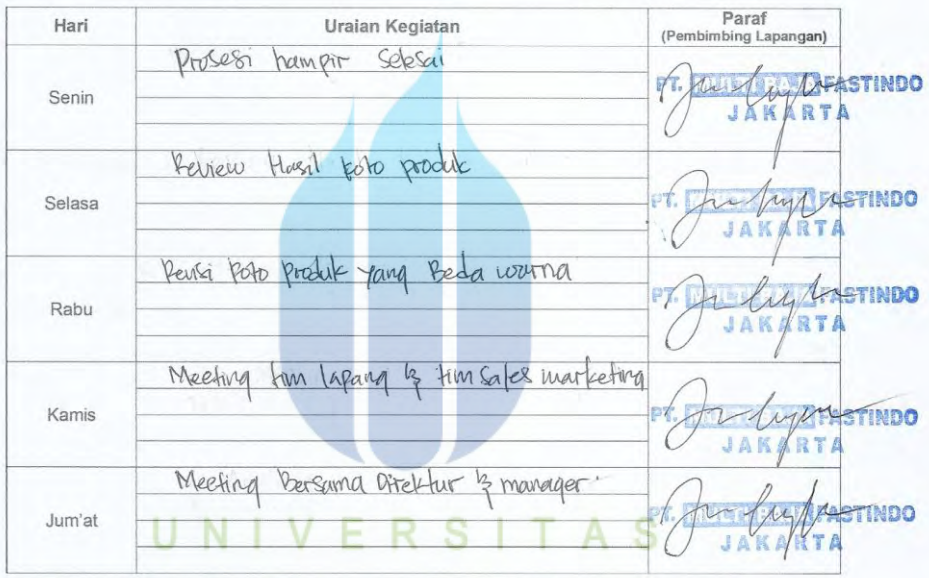 Hari Uraian Kegiatan Paraf
(Pembimbing Lapangan)
Senin
Prosesi hampir Selesai
PT. MULTI RAJA FASTINDO
JAKARTA
Selasa
Review Hasil Foto produk
PT. MULTI RAJA FASTINDO
JAKARTA
Rabu
Revisi Foto Produk yang Beda warna
PT. MULTI RAJA FASTINDO
JAKARTA
Kamis
Meeting tim lapang & tim Sales marketing
PT. MULTI RAJA FASTINDO
JAKARTA
Jum'at
Meeting Bersama Direktur & manager.
PT. MULTI RAJA FASTINDO
JAKARTA
UNIVERSITAS